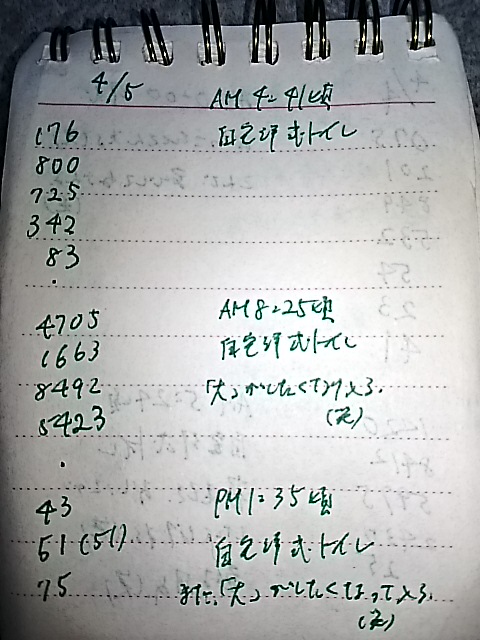 4/5 AM 4:41頃
176 自宅洋式トイレ
800
725
342
83
.
4705 AM 8:25頃
1663 自宅洋式トイレ
8492 「大」がしたくて入る。
5423 (記)
.
43 PM 1:35頃
51 (51) 自宅洋式トイレ
75 また、「大」がしたくなって入る。
(記)